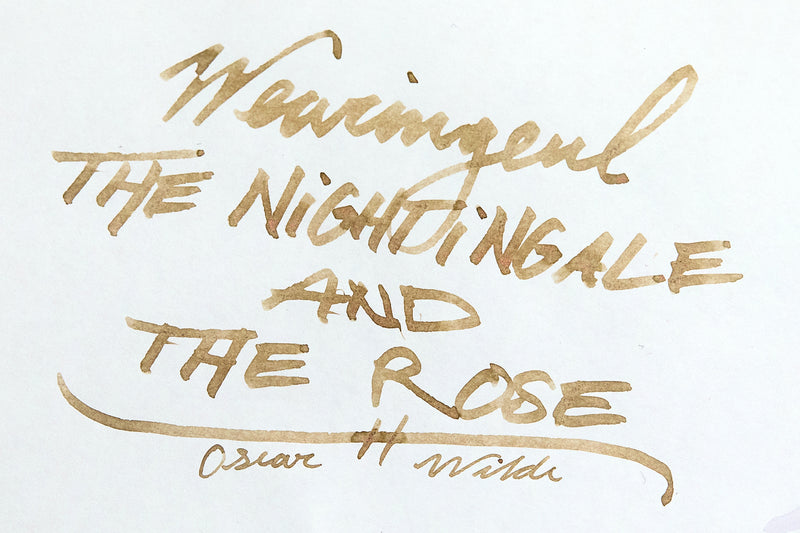 Wearingeul
THE NiGHTDiNGALE
AND
THE ROSE
Oscar Wilde